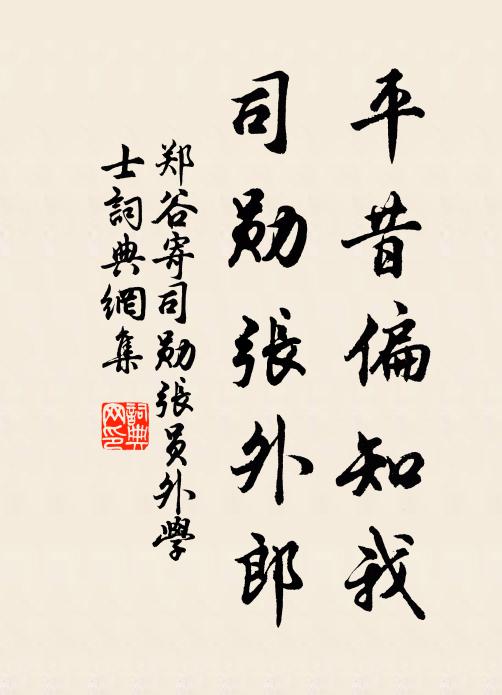 平昔偏知我
司勋張外郎
郑谷寄司勋張员外學
士詞典網集
詞典网印